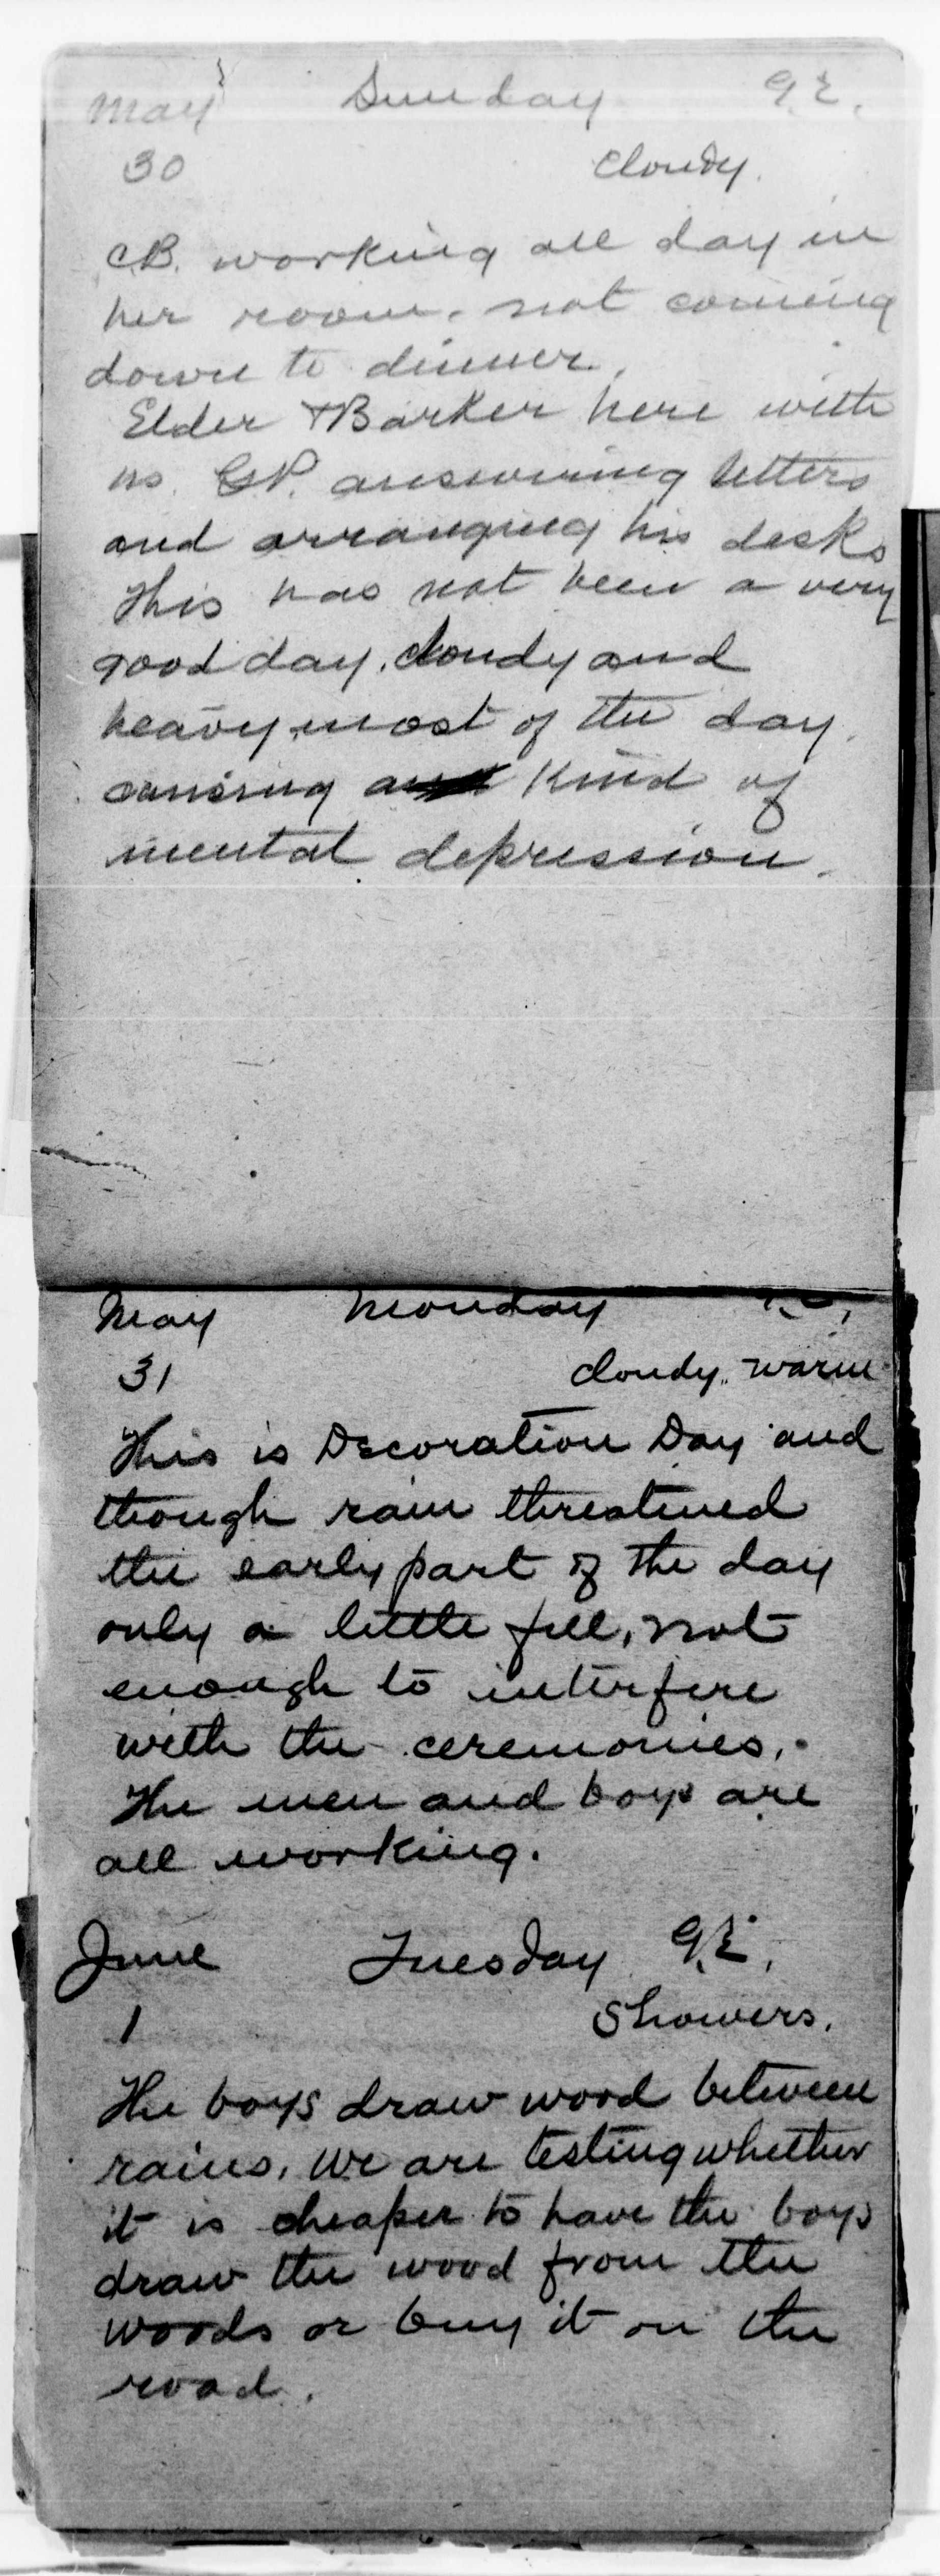 May Sunday G.E.
30 cloudy.
C.B. working all day in
her room, not coming
down to dinner.
Elder + Barker here with
us. G.P. answering letters
and arranging his desks
This has not been a very
good day, cloudy and
heavy most of the day,
causing a kind of
mental depression.
May Monday
31 cloudy, warm
This is Decoration Day and
though rain threatened
the early part of the day
only a little fell, not
enough to interfere
with the ceremonies.
The men and boys are
all working.
June Tuesday G.E.
1 Showers.
The boys draw wood between
rains. We are testing whether
it is cheaper to have the boys
draw the wood from the
woods or buy it on the
road.